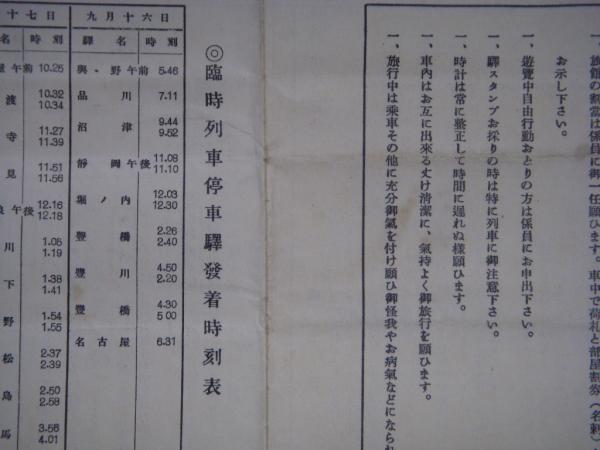 一、旅館の割當は係員に御一任願ひます。車中で荷札と部屋割券(名刺)
お示し下さい。
一、遊覽中自由行動おとりの方は係員にお申出下さい。
一、驛スタンプお採りの時は特に列車に御注意下さい。
一、時計は常に整正して時間に遲れぬ樣願ひます。
一、車內はお互に出來る丈け清潔に、氣持よく御旅行を願ひます。
一、旅行中は乘車その他に充分御氣を付け願ひ御怪我やお病氣などになられ
◎臨時列車停車驛發着時刻表
九月十六日
驛名 時刻
與野 午前 5.46
品川 7.11
沼津 9.44 9.52
靜岡 午後 11.08 11.10
堀ノ內 12.03 12.30
豐橋 2.26 2.40
豐川 4.50 2.20
豐橋 4.30 5 00
名古屋 6.31
十七日
名 時刻
午前 10.25
渡 10.32 10.34
寺 11.27 11.39
見 11.51 11.56
午後 12.16 12.18
川 1.05 1.19
下 1.38 1.41
野 1.54 1.55
松 2.37 2.39
鳥 2.50 2.58
馬 3.56 4.01